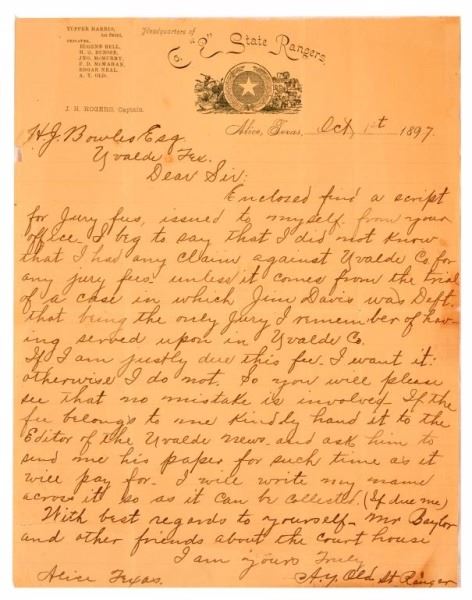 TUPPER HARRIS,
1st Sergt.
PRIVATES.
EUGENE BELL,
H. G. DUBOSE,
JNO. McMURRY,
F. D. McMAHAN,
EDGAR NEAL,
A. Y. OLD.
J. H. ROGERS, Captain.
Headquarters of
Co. "E" State Rangers,
Alice, Texas, Oct 1st 1897.
H. J. Bowles Esq
Uvalde Tex.
Dear Sir:
Enclosed find a script
for Jury fees, issued to myself from your
office - I beg to say that I did not know
that I had any claim against Uvalde Co. for
any jury fees - unless it comes from the trial
of a case in which Jim Davis was Deft.
that being the only Jury I remember of hav-
ing served upon in Uvalde Co.
If I am justly due this fee. I want it:
otherwise I do not. So you will please
see that no mistake is involved. If the
fee belongs to me kindly hand it to the
Editor of the Uvalde News and ask him to
send me his paper for such time as it
will pay for - I will write my name
across it so as it can be collected. (If due me)
With best regards to yourself - Mr Baylor
and other friends about the court house
I am yours Truly
Alice Texas. A.Y. Old St Ranger